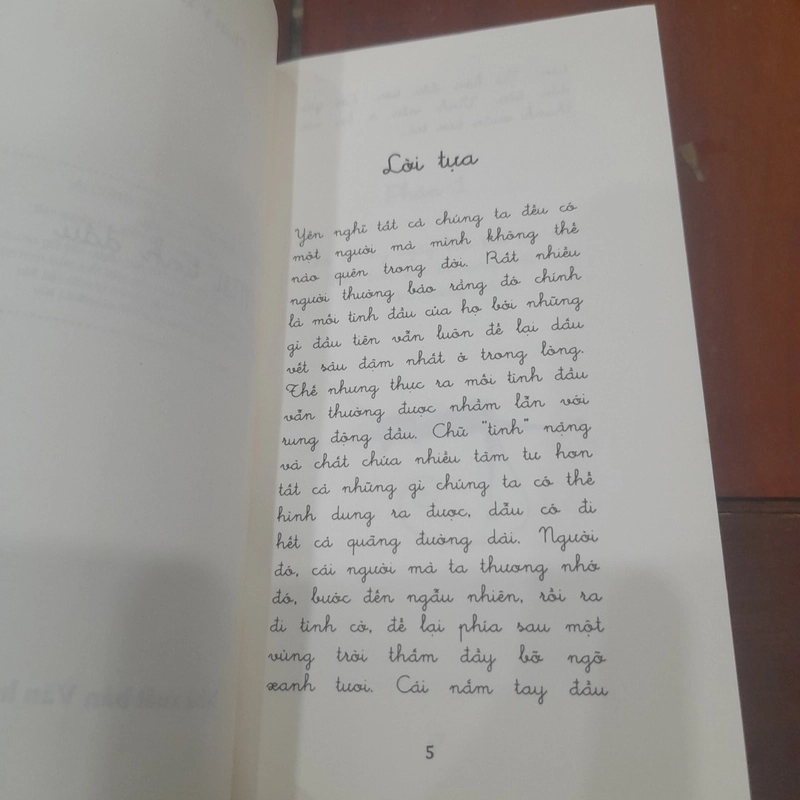 Lời tựa
Yên nghĩ tất cả chúng ta đều có
một người mà mình không thể
nào quên trong đời. Rất nhiều
người thường bảo rằng đó chính
là mối tình đầu của họ bởi những
gì đầu tiên vẫn luôn để lại dấu
vết sâu đậm nhất ở trong lòng.
Thế nhưng thực ra mối tình đầu
vẫn thường được nhầm lẫn với
rung động đầu. Chữ "tình" nặng
và chất chứa nhiều tâm tư hơn
tất cả những gì chúng ta có thể
hình dung ra được, dẫu có đi
hết cả quãng đường dài. Người
đó, cái người mà ta thương nhớ
đó, bước đến ngẫu nhiên, rồi ra
đi tình cờ, để lại phía sau một
vùng trời thẳm đầy bỡ ngỡ
xanh tươi. Cái nắm tay đầu
5